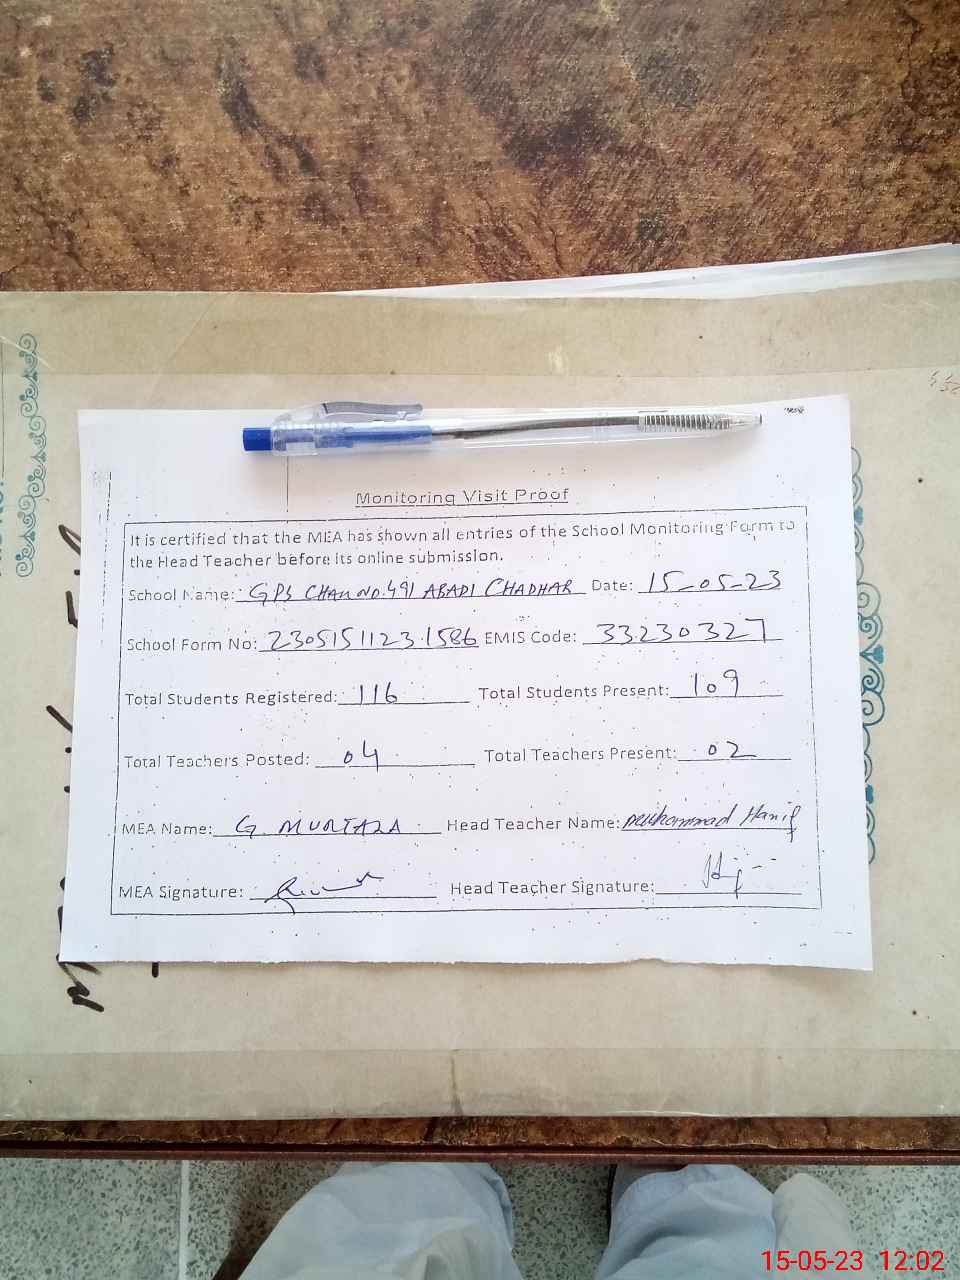 Monitoring Visit Proof
It is certified that the MEA has shown all entries of the School Monitoring Form to
the Head Teacher before its online submission.
School Name: GPS CHAK NO. 491 ABADI CHADHAR Date: 15-05-23
School Form No: 23051511231586 EMIS Code: 33230327
Total Students Registered: 116 Total Students Present: 109
Total Teachers Posted: 04 Total Teachers Present: 02
MEA Name: G. MURTAZA Head Teacher Name: Muhammad Hanif
MEA Signature: Head Teacher Signature:
15-05-23 12:02